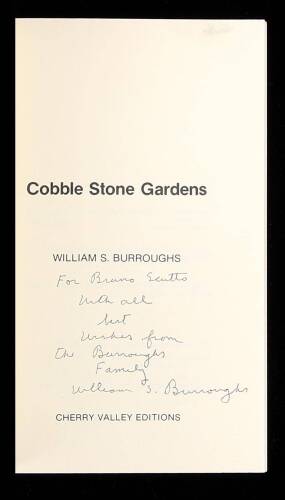 Cobble Stone Gardens
WILLIAM S. BURROUGHS
For Bruno
With all
best
wishes from
the Burroughs
Family
William S. Burroughs
CHERRY VALLEY EDITIONS